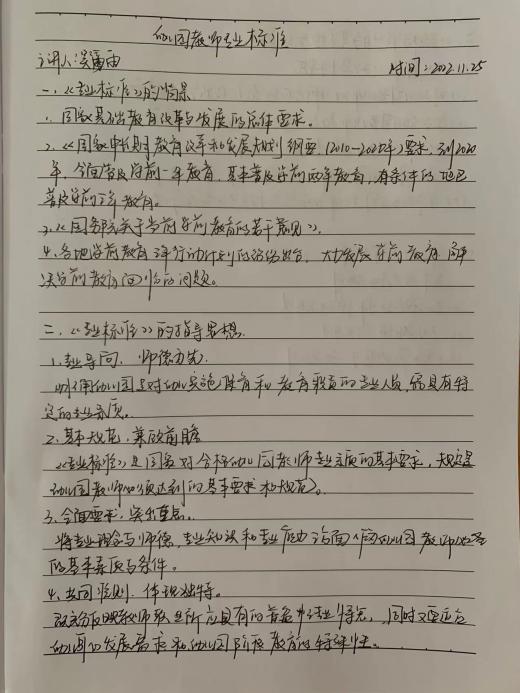 幼儿园教师专业标准
主讲人:吴富雨 时间:2022.11.25
一、《专业标准》的背景
1. 国家基础教育改革与发展的总体要求。
2.《国家中长期教育改革和发展规划纲要 (2010-2020年)要求,到2020
年,全面普及学前一年教育,基本普及学前两年教育,有条件的地区
普及学前三年教育。
3.《国务院关于当前学前教育的若干意见》。
4.各地学前教育三年行动计划的纷纷出台,大力发展学前教育 解
决学前教育面临的问题。
二、《专业标准》的指导思想
1.专业导向,师德为先.
幼儿园是对幼儿实施保育和教育职责的专业人员,需具有特
定的专业素质。
2.基本规范,兼顾前瞻
《专业标准》是国家对合格幼儿园教师专业素质的基本要求,规定
幼儿园教师必须达到的基本要求和规范。
3.全面要求,突出重点。
将专业理念与师德,专业知识和专业能力 方面作为幼儿园教师必备
的基本素质与条件。
4.共同准则,体现独特。
充分反映教师职业所应具有的专业特点,同时又适应
幼儿的发展需求和幼儿园阶段教育的特殊性。